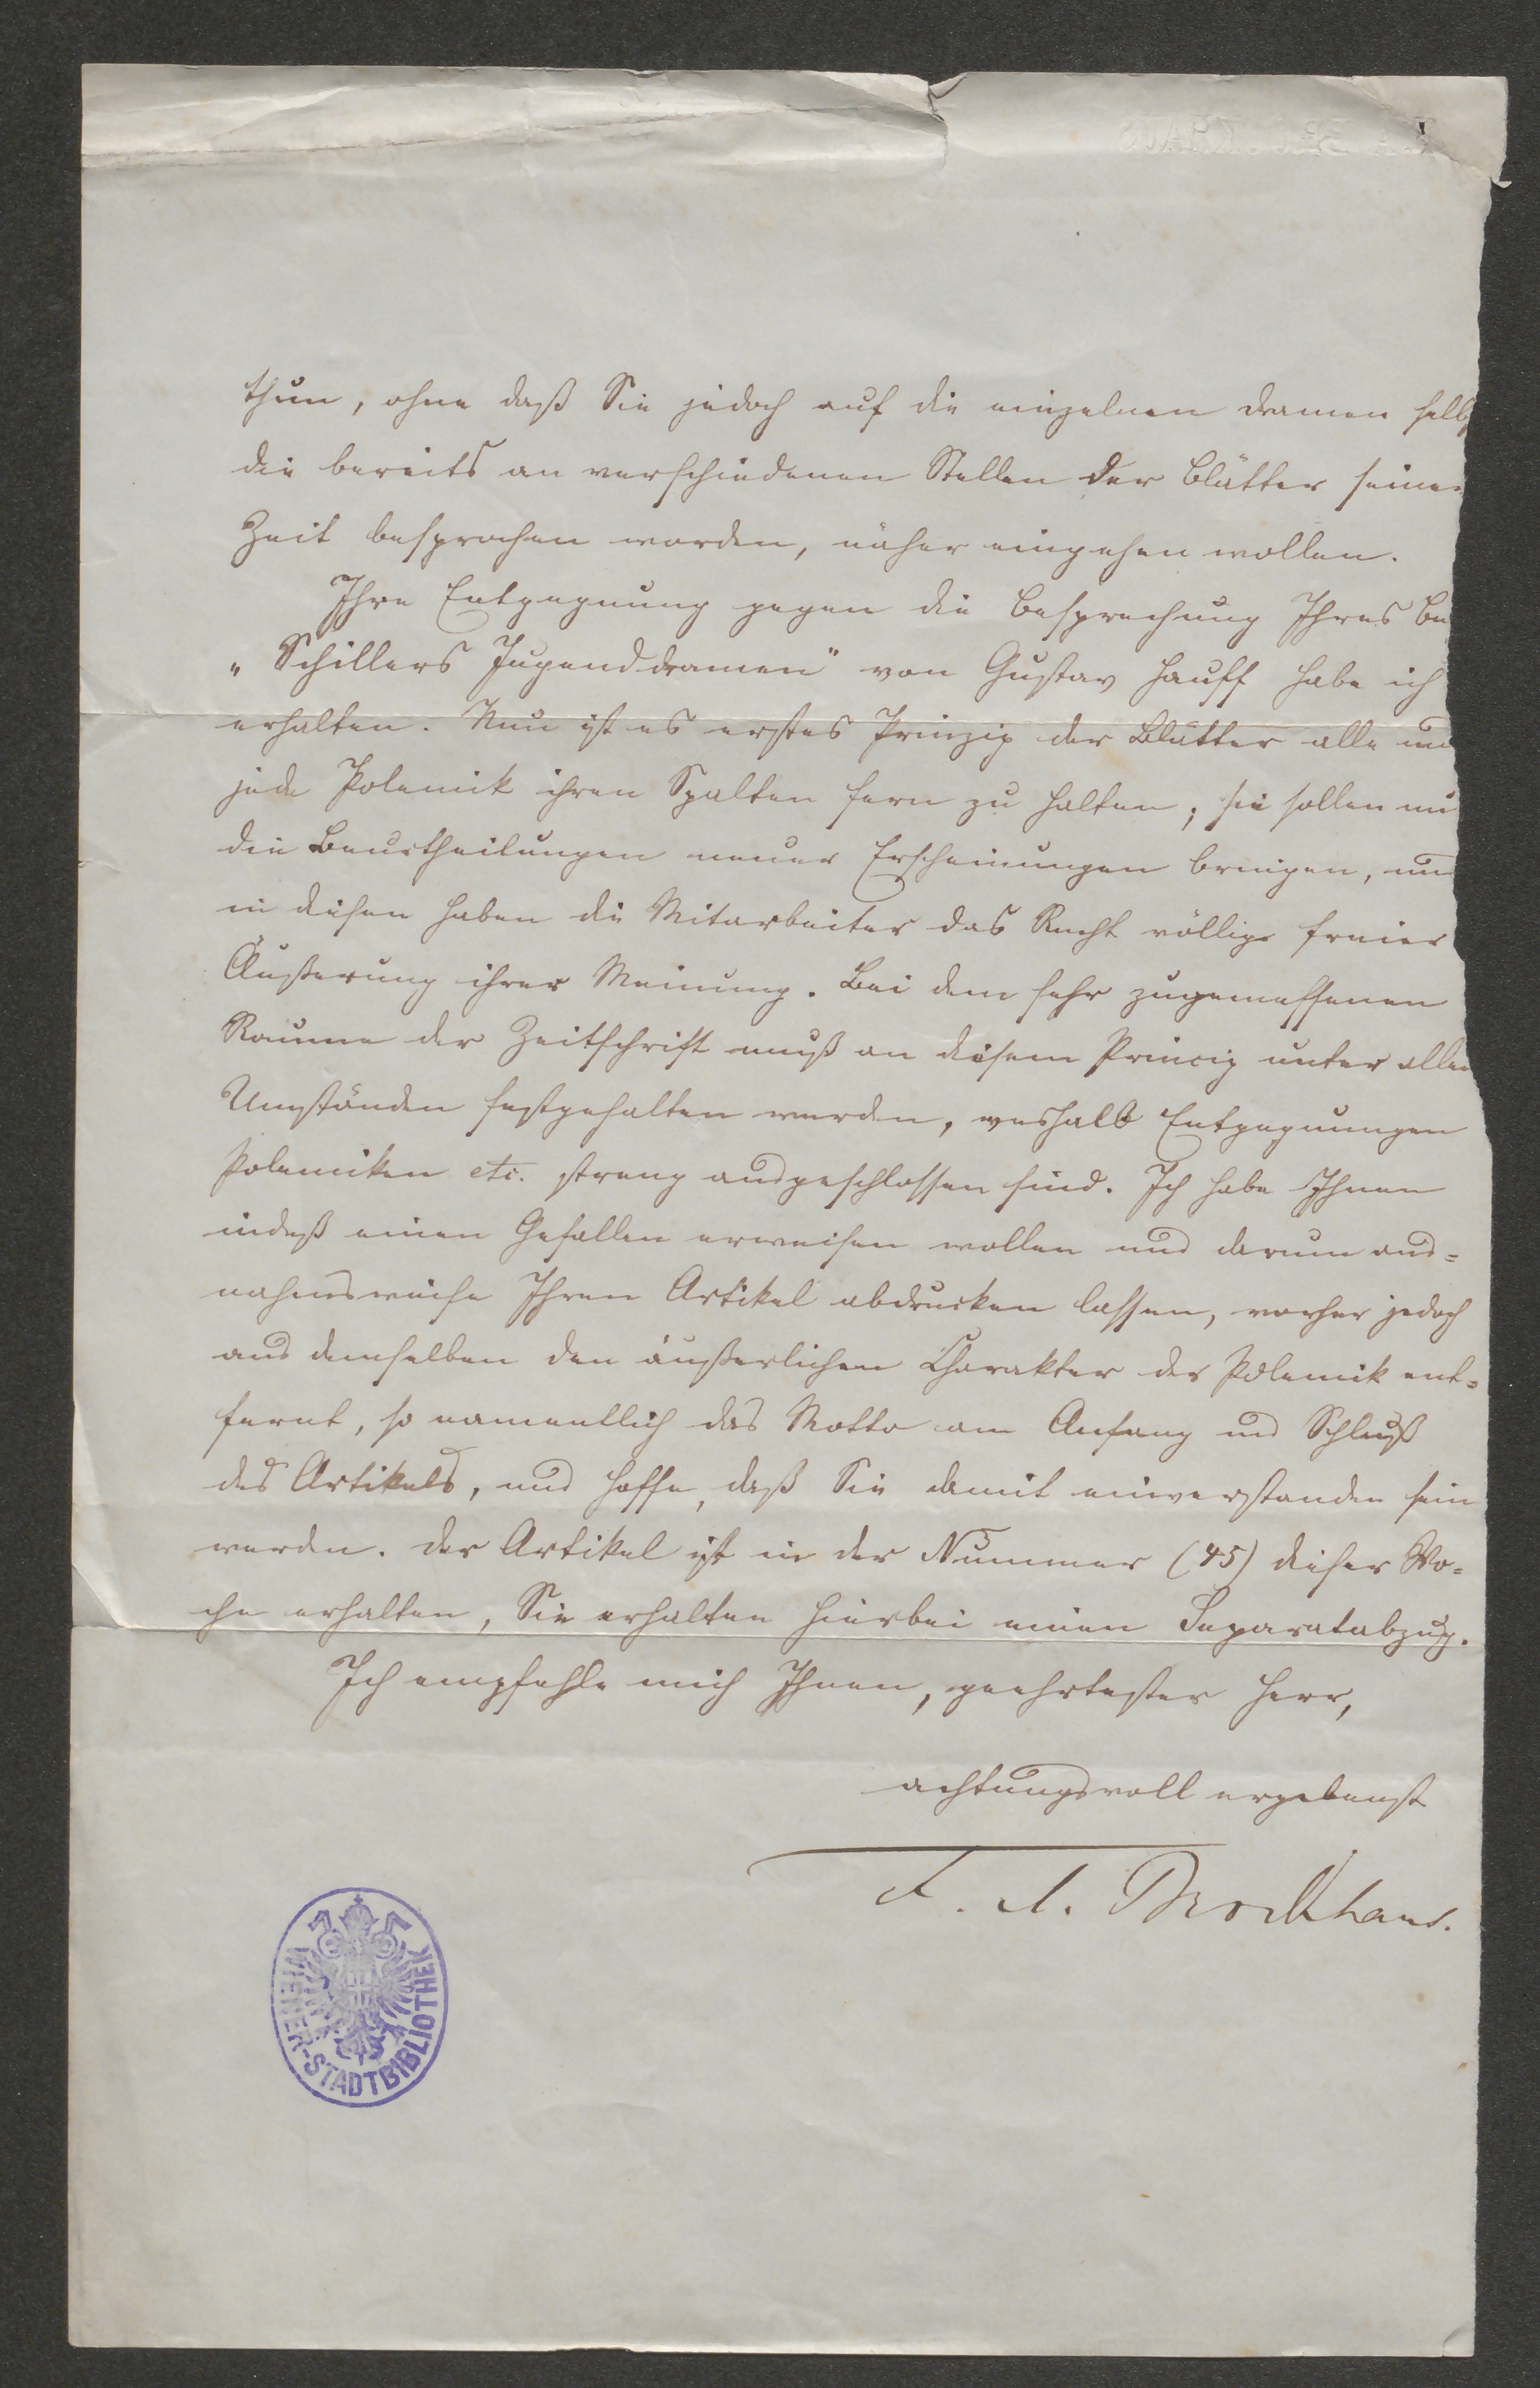 thun, ohne daß Sie jedoch auf die einzelnen Dramen selbs
die bereits an verschiedenen Stellen der Blätter seiner
Zeit besprochen worden, näher eingehen wollen.
Ihre Entgegnung gegen die Besprechung Ihres Bu
„Schillers Jugenddramen" von Gustav Hauff habe ich
erhalten. Nun ist es erstes Prinzip der Blätter alle und
jede Polemik ihren Spalten fern zu halten; sie sollen nu
die Beurtheilungen neuer Erscheinungen bringen, und
in diesen haben die Mitarbeiter das Recht völlig freier
Äußerung ihrer Meinung. Bei dem sehr zugemessenen
Raume der Zeitschrift muß an diesem Princip unter allen
Umständen festgehalten werden, weshalb Entgegnungen
Polemiken etc. streng ausgeschlossen sind. Ich habe Ihnen
indeß einen Gefallen erweisen wollen und darum aus=
nahmsweise Ihren Artikel abdrucken lassen, vorher jedoch
aus demselben den äußerlichen Charakter der Polemik ent=
fernt, so namentlich das Motto am Anfang und Schluß
des Artikels, und hoffe, daß Sie damit einverstanden sein
werden. Der Artikel ist in der Nummer (45) dieser Wo=
che erhalten, Sie erhalten hierbei einen Separatabzug.
Ich empfehle mich Ihnen, geehrtester Herr,
achtungsvoll ergebenst
F. A. Brockhaus.
WIENER-STADTBIBLIOTHEK